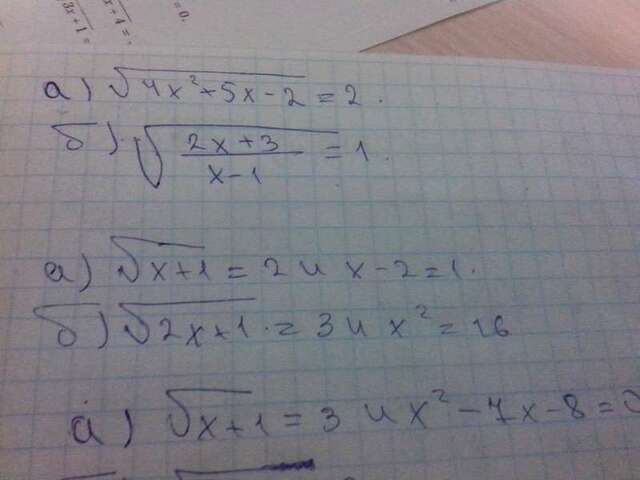 3x+1=
x+4=
=0.
а) √4x²+5x-2 = 2.
б) √(2x+3)/(x-1) = 1.
а) √x+1 = 2 и x-2=1.
б) √2x+1 = 3 и x² = 16
а) √x+1 = 3 и x²-7x-8=0